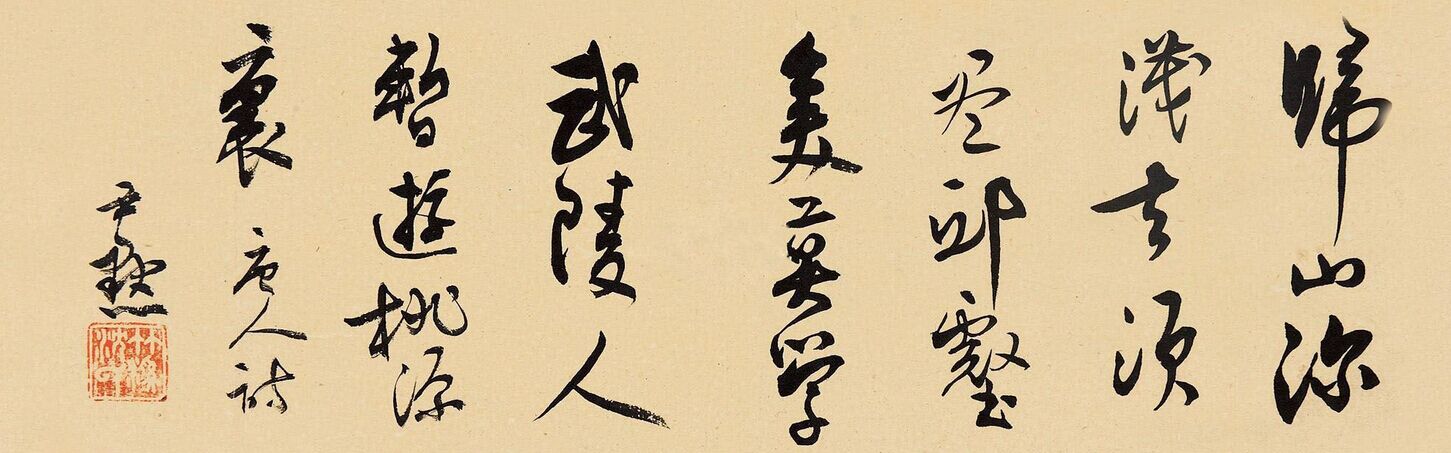 歸山深
淺去須
盡邱壑
美莫學
武陵人
暫遊桃源
裏 唐人詩
尹默